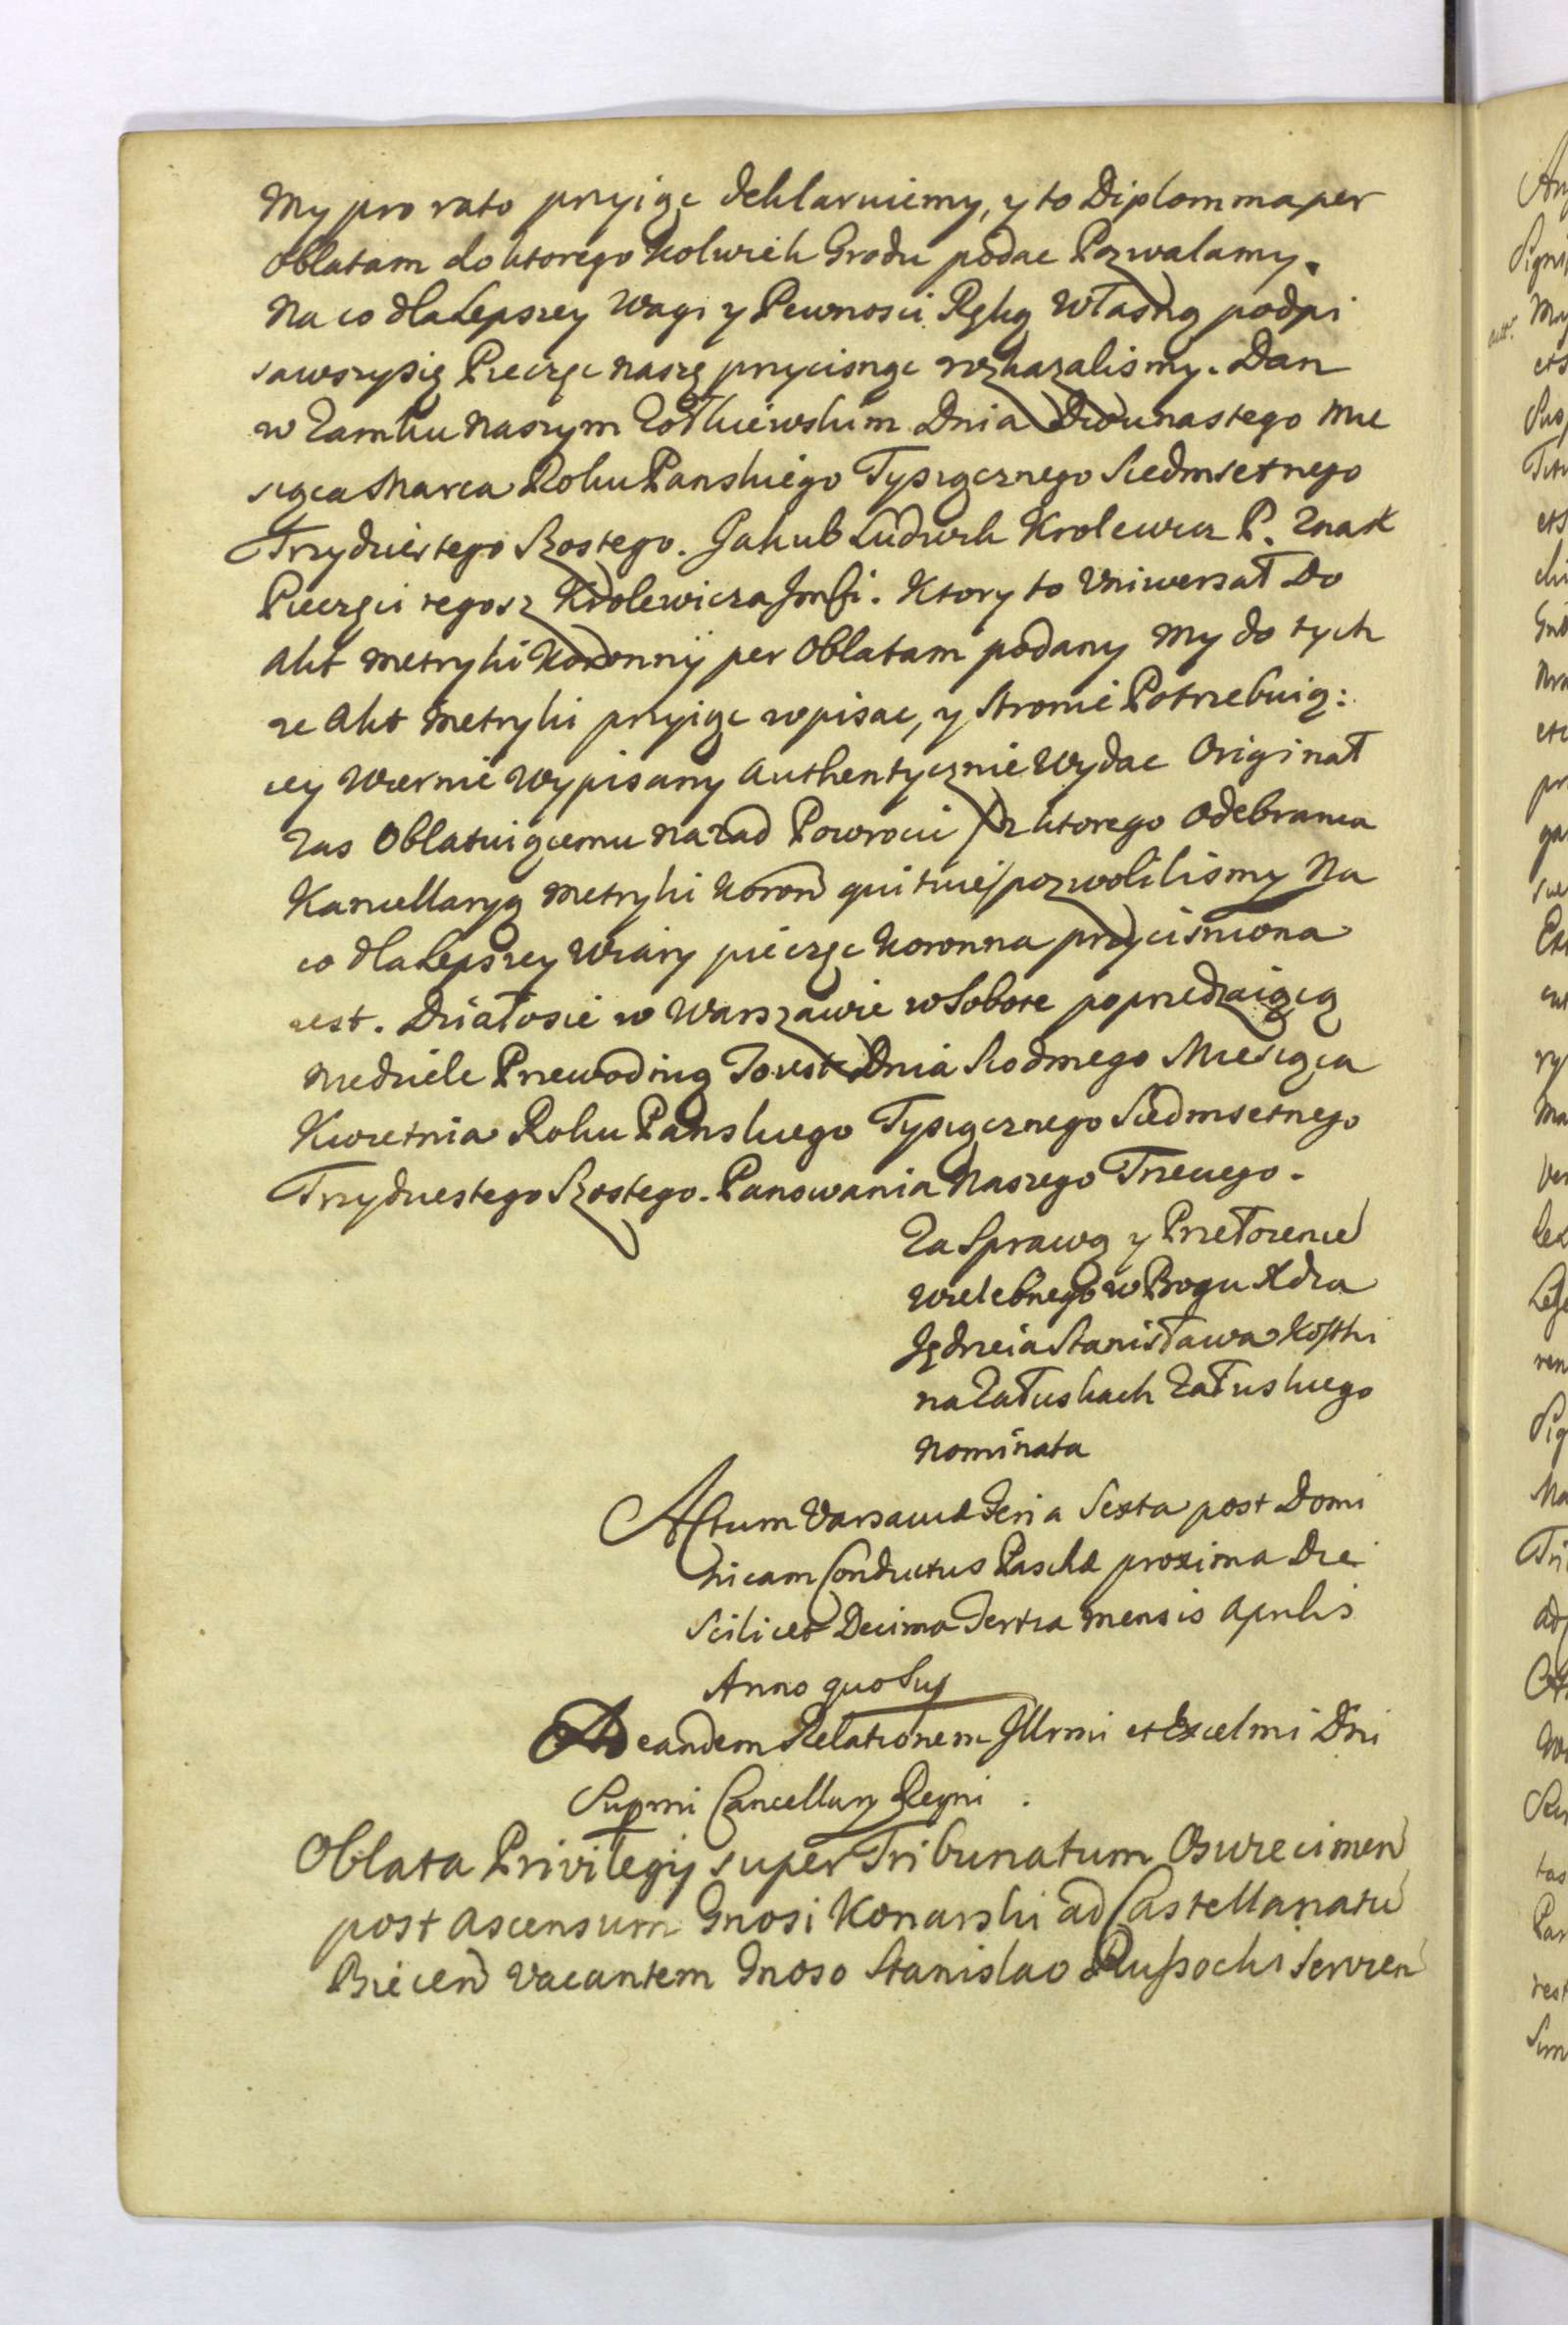 My pro rato przyiąc deklaruiemy, y to Diplomma per
Oblatam do ktorego kolwiek Grodu podac Pozwalamy.
Na co dla Lepszey Wagi y Pewnosci Ręką Własną podpi
sawszysię Pieczęc naszę przycisnąc rozkazalismy. Dan
w Zamku Naszym Zołkiewskim Dnia Dwunastego Mie
siąca Marca Roku Panskiego Tysiącznego Siedmsetnego
Trzydziestego Szostego. Jakub Ludwik Krolewicz P. Znak
Pieczęci tegosz Krolewicza Jmsci. Ktory to Vniwersał Do
Akt Metryki Koronnij per Oblatam podany My do tych
ze Akt Metryki przyiąc wpisac, y Stronie Potrzebuią:
cey Wiernie Wypisany Authentycznie Wydac Originał
zas Oblatuiącemu nazad Powrocic /z ktorego Odebrania
Kancellaryą Metryki Koron quituie/ pozwolilismy Na
co dla Lepszey Wiary pieczęc Koronna przycisniona
iest. Działosie w Warszawie w Sobote poprzedzaiącą
Niedziele Przewodnią To iest Dnia Siodmego Miesiąca
Kwietnia Roku Panskiego Tysiącznego Siedmsetnego
Trzydziestego Szostego. Panowania Naszego Trzeciego.
Za Sprawą y Przełozenie
Wielebnego w Bogu Xdza
Jędrzeia Stanisława Kostki
na Załuskach Załuskiego
Nominata
Actum Varsaviæ Feria Sexta post Domi
nicam Conductus Paschæ proxima Die
Scilicet Decima Tertia Mensis Aprilis
Anno quo Sup
Ad eandem Relationem Illrmi et Excelmi Dni
Suprmi Cancellarij Regni.
Oblata Privilegij super Tribunatum Oswiecimen
post Ascensum Gnosi Konarski ad Castellanatu
Biecen Vacantem Gnoso Stanislao Russocki Servien